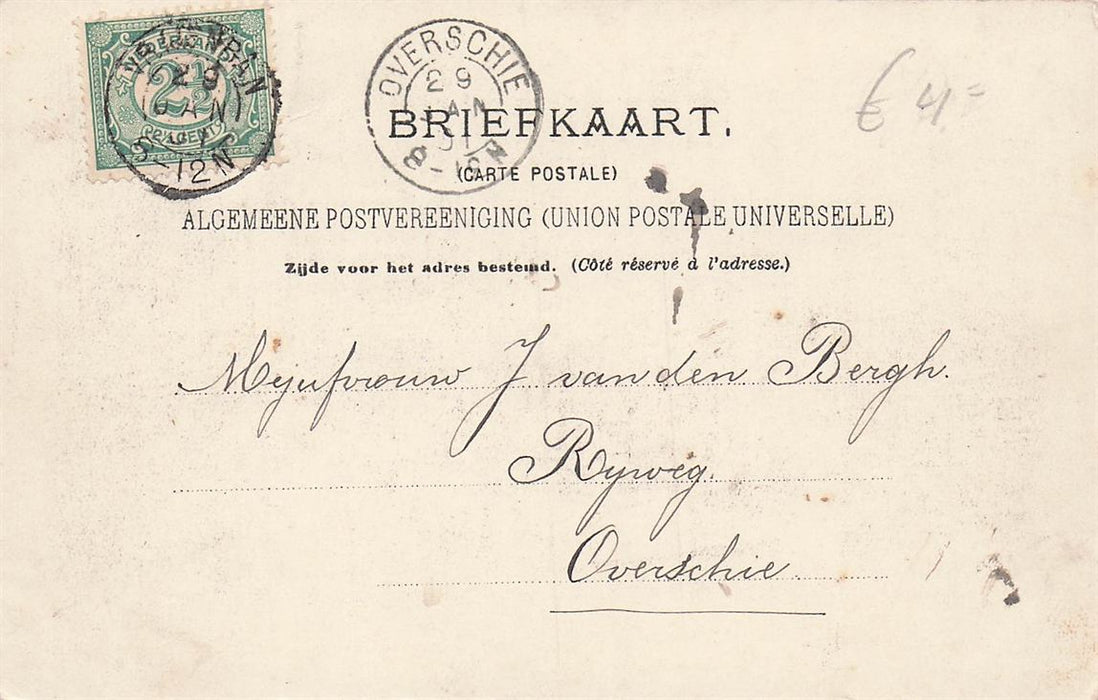 NEDERLAND
2½
CENT
29
JAN
8-12N
OVERSCHIE
29
JAN
01
8-12N
€ 4,=
BRIEFKAART.
(CARTE POSTALE)
ALGEMEENE POSTVEREENIGING (UNION POSTALE UNIVERSELLE)
Zijde voor het adres bestemd. (Côté réservé à l'adresse.)
Mejufvrouw J van den Bergh.
Ryweg.
Overschie.